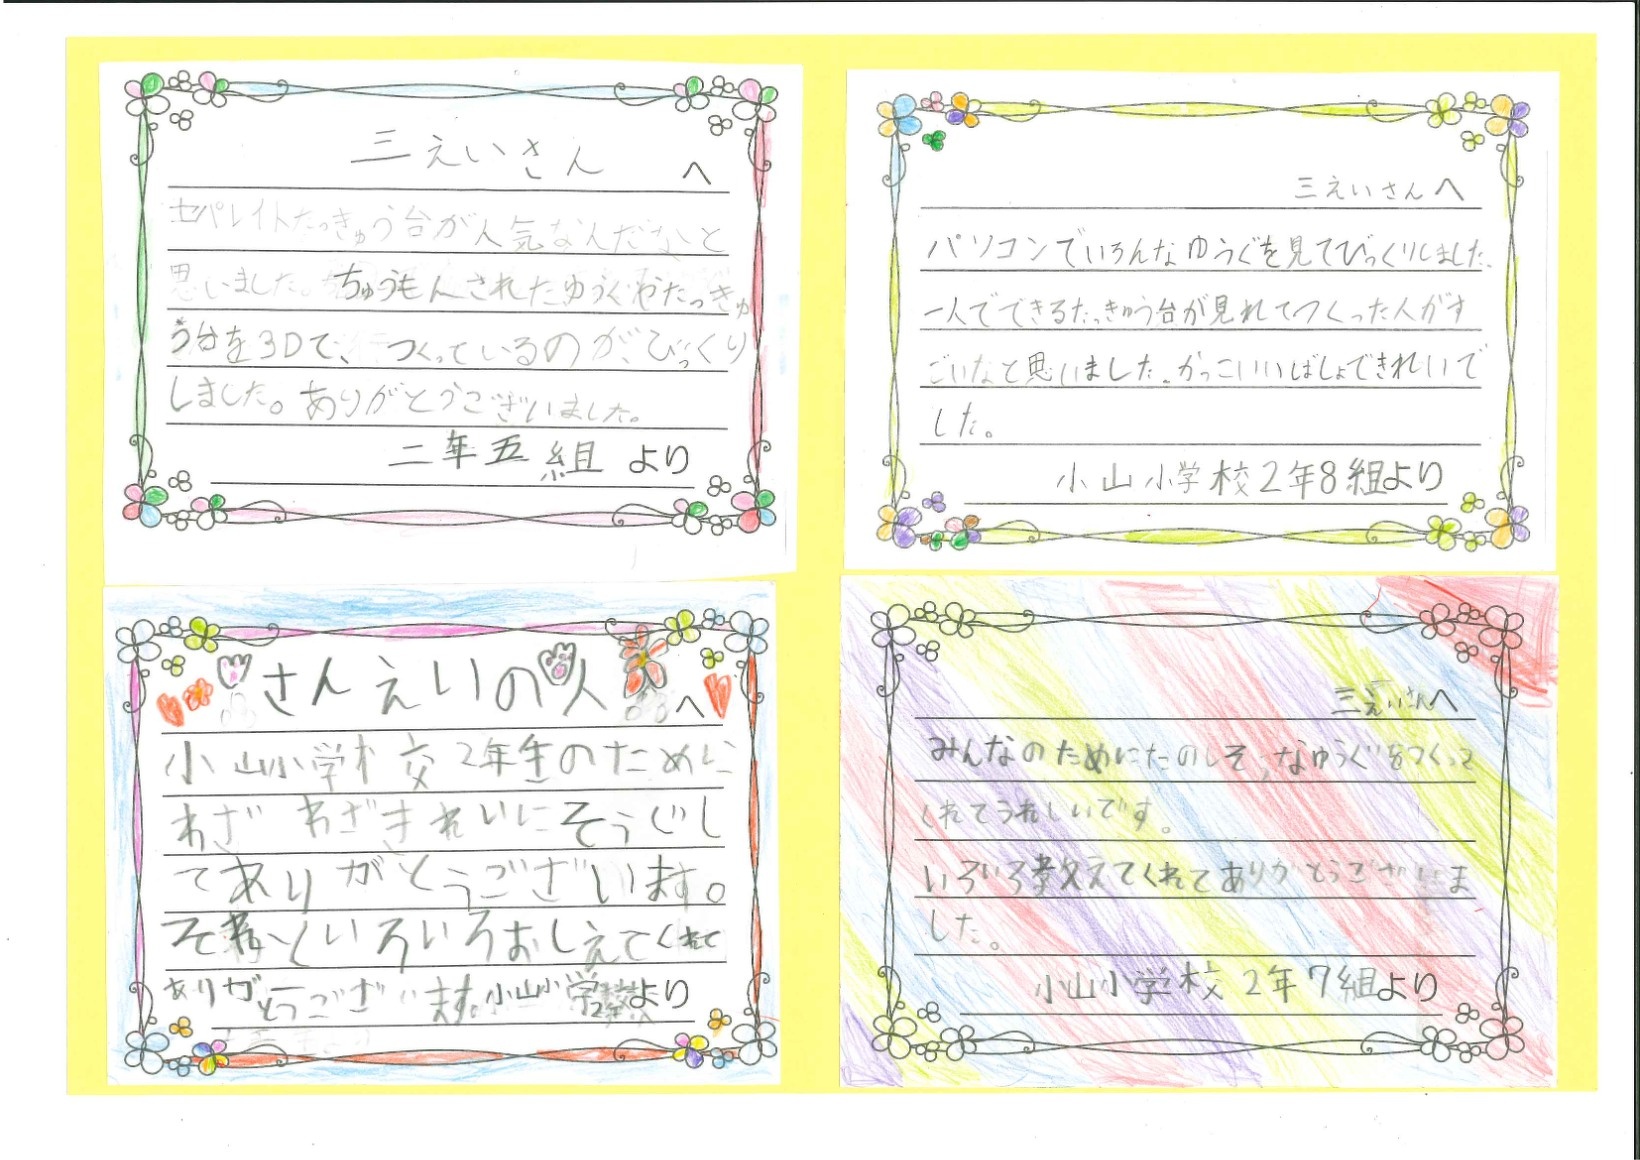 三えいさん
へ
セパレイトたっきゅう台が人気なんだなと
思いました。ちゅうもんされたゆうぐやたっきゅ
う台を3Dで、つくっているのが、びっくり
しました。ありがとうございました。
二年五組 より
三えいさんへ
パソコンでいろんなゆうぐを見てびっくりしました。
一人でできるたっきゅう台が見れてつくった人がす
ごいなと思いました。かっこいいばしょできれいで
した。
小山小学校2年8組より
さんえいの人
へ
小山小学校2年生のために
わざわざきれいにそうじし
てありがとうございます。
いろいろおしえてくれて
ありがとうございます。小山小学校 より
三えいさんへ
みんなのためにたのしそうなゆうぐをつくって
くれてうれしいです。
いろいろ教えてくれてありがとうございま
した。
小山小学校2年7組より